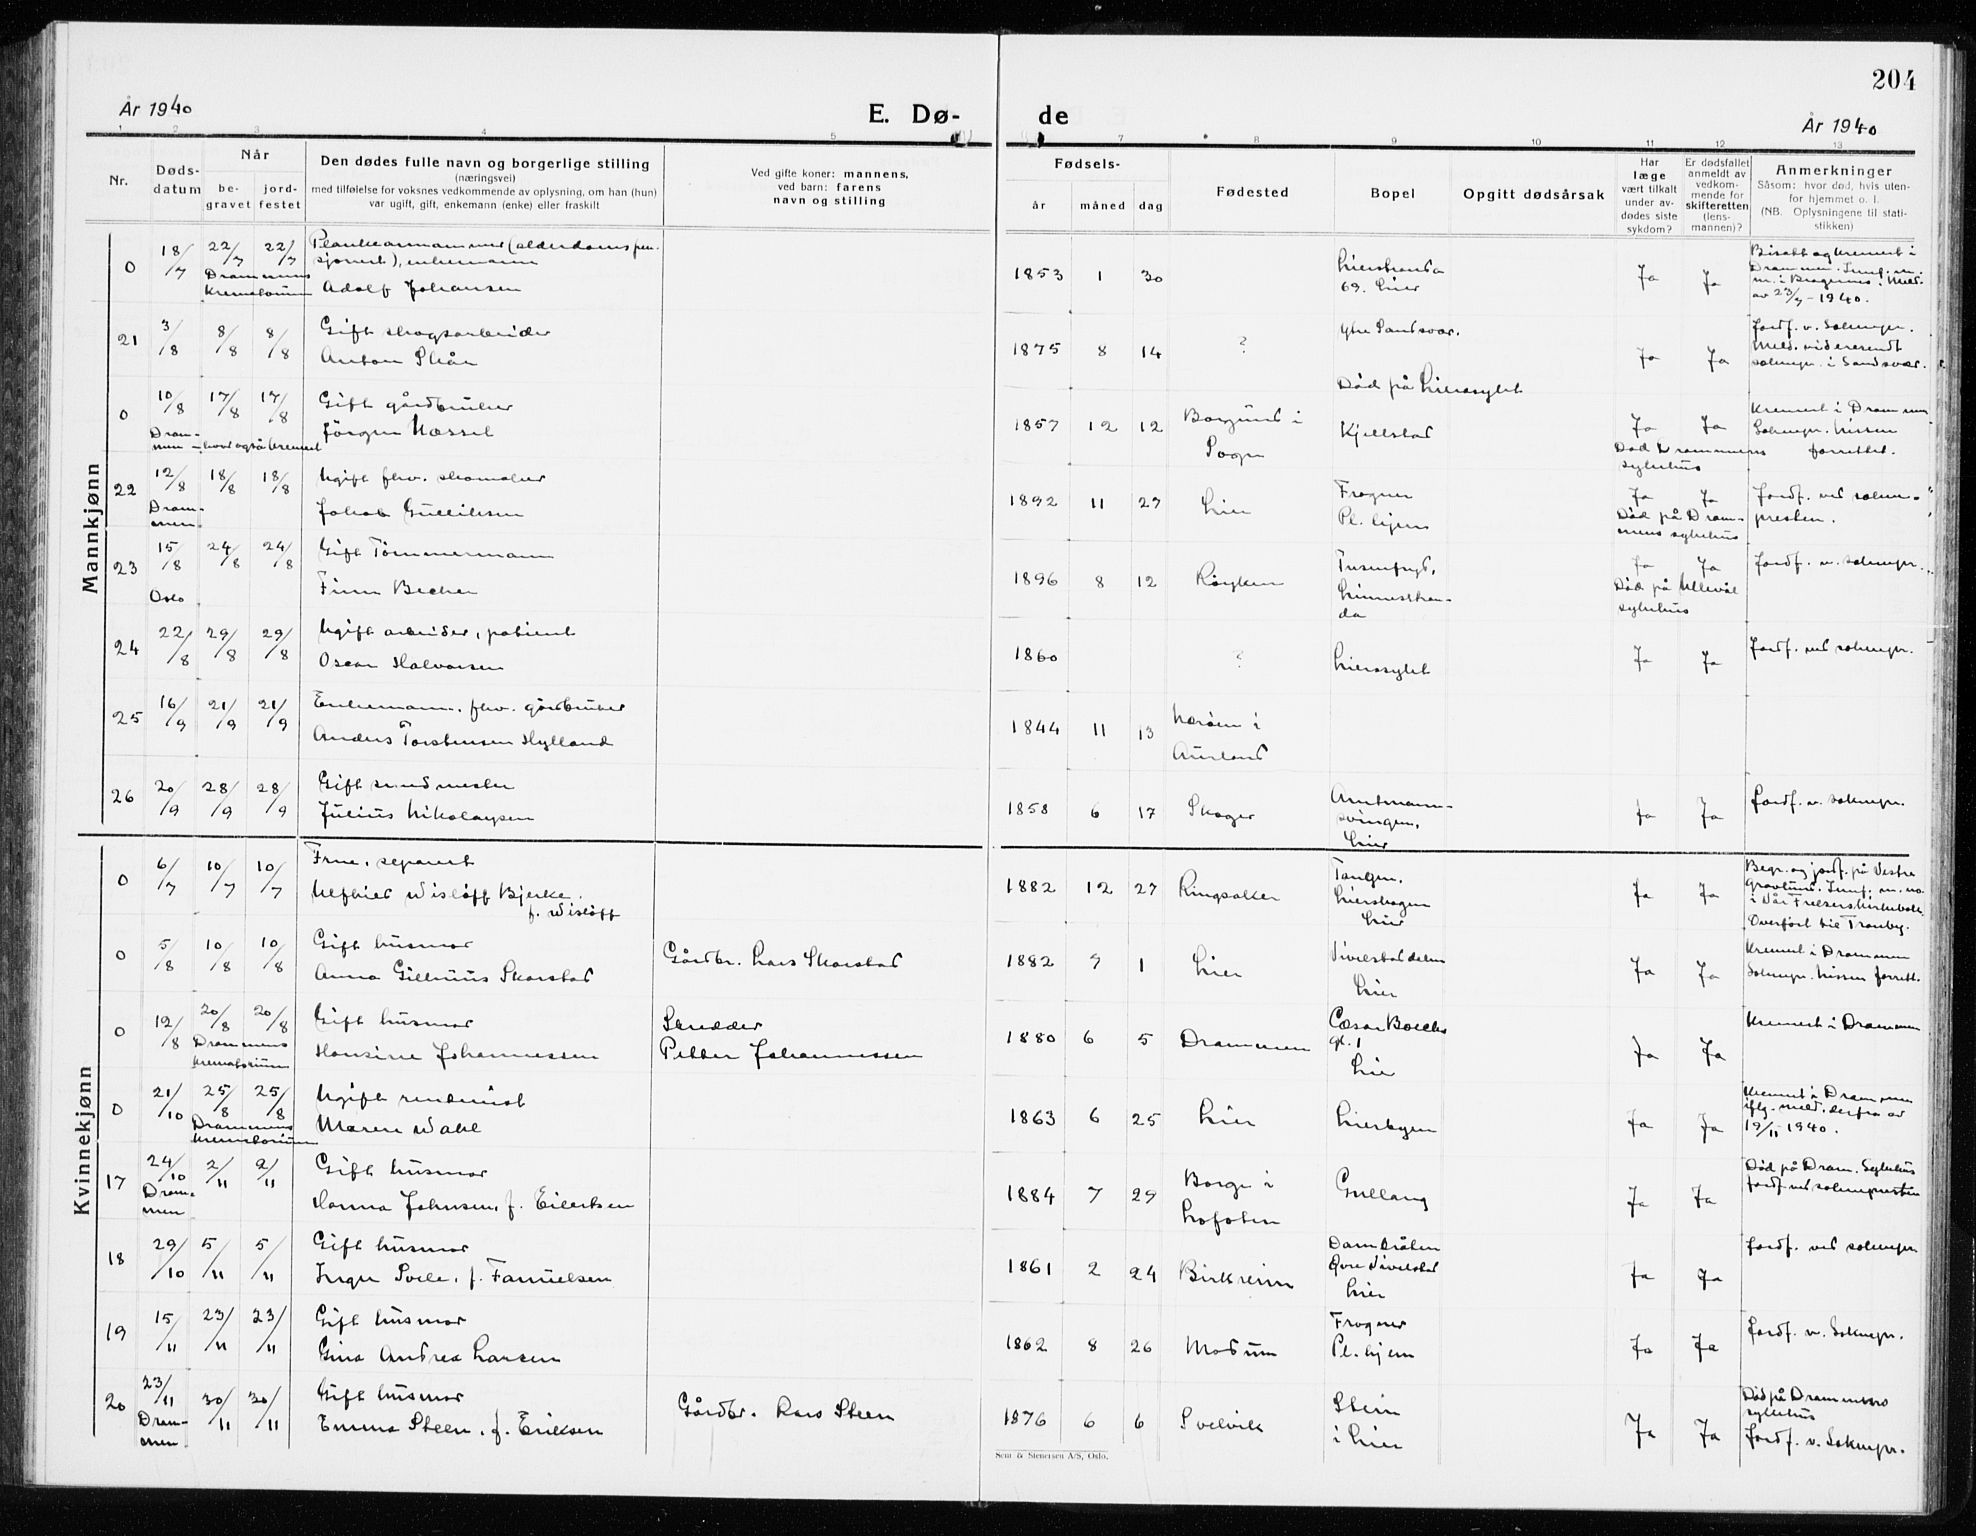 204
År 1940
E. Dø-
de
År 1940
1 2 3 4 5 7 8 9 10 11 12 13
Nr.
Døds-
datum
Når
be-
gravet
jord-
festet
Den dødes fulle navn og borgerlige stilling
(næringsvei)
med tilføielse for voksnes vedkommende av oplysning, om han (hun)
var ugift, gift, enkemann (enke) eller fraskilt
Ved gifte koner: mannens,
ved barn: farens
navn og stilling
Fødsels-
år
måned
dag
Fødested
Bopel
Opgitt dødsårsak
Har
læge
vært tilkalt
under av-
dødes siste
sykdom?
Er dødsfallet
anmeldt av
vedkom-
mende for
skifteretten
(lens-
mannen)?
Anmerkninger
Såsom: hvor død, hvis uten-
for hjemmet o. l.
(NB. Oplysningene til stati-
stikken)
Mannkjønn
0 18/7 22/7 22/7
Drammens
Krematorium
enkemann
Adolf Johansen
1853 1 30
Lierstranda
69. Lier
Ja Ja
Bisatt og kremert i
Drammen.
av 23/7 - 1940.
21 3/8 8/8 8/8
Gift skogsarbeider
Anton Skår
1875 8 14 ?
Ytre Sandsvær.
Død på Lierasylet
Ja Ja
Jordf. v. Soknepr.
Meld. videresendt
soknepr. i Sandsvær.
0 10/8 17/8 17/8
Dram-
men - hvor også kremert
Gift gårdbruker
Jörgen Næssel
1857 12 12
Borgund i
Sogn
Kjellstad
Ja Ja
Død Drammens
sykehus
Kremert i Drammen
Soknepr. Nissen
forrettet.
22 12/8 18/8 18/8
Dram-
men
Ugift fhv. skomaker
Jakob Gulliksen
1892 11 27 Lier
Frogner
Pl. hjem
Ja Ja
Død på Dram-
mens sykehus
Jordf. ved sokne-
presten.
23 15/8 24/8 24/8
Oslo
Gift Tömmermann
Finn Becher
1896 8 12 Røyken
Tusenfryd,
Linnesstran-
da
Ja Ja
Død på Ullevål
sykehus
Jordf. v. soknepr.
24 22/8 29/8 29/8
Ugift arbeider, patient
Oscar Halvorsen
1860 ? Lierasylet
Ja Ja
Jordf. ved soknepr.
25 16/9 21/9 21/9
Enkemann, fhv. gårdbruker
Anders Torstensen Hylland
1844 11 13
Nærøien i
Aurland
26 20/9 28/9 28/9
Gift smedmester
Julius Nikolaysen
1858 6 17 Skoger
Amtmann-
svingen,
Lier
Ja Ja
Jordf. v. soknepr.
Kvinnekjønn
0 6/7 10/7 10/7
Frue, separert
Wisløff Bjerke.
f. Wisløff
1882 12 27 Ringsaker
Tangen,
Lierskogen
Lier
Ja Ja
Begr. og jordf. på Vestre
Gravlund.
i Vår Frelsers
Overført til Tranby.
0 5/8 10/8 10/8
Gift husmor
Anna Gilhuus Skarstad
Gårdbr. Lars Skarstad
1882 9 1 Lier
Vivelstaddelen
Lier
Ja Ja
Kremert i Drammen
Soknepr. Nissen forrett.
0 12/8 20/8 20/8
Drammens
krematorium
Gift husmor
Hansine Johannessen
Skredder
Petter Johannessen
1880 6 5 Drammen
Cæsar Boecks
gt. 1
Lier
Ja Ja
Kremert i Drammen
0 21/10 25/8 25/8
Drammens
krematorium
Ugift rentenist
Maren Wahl
1863 6 25 Lier Lierbyen
Ja Ja
Kremert i Drammen
iflg. meld. derfra av
19/11 1940.
17 24/10 2/11 2/11
Dram-
men
Gift husmor
Hanna Johnsen, f. Eilertsen
1884 7 29
Borge i
Lofoten
Gullaug
Ja Ja
Død på Dram. Sykehus
Jordf. ved soknepresten
18 29/10 5/11 5/11
Gift husmor
Inger Svele, f. Fanuelsen
1861 2 24 Birkreim
Damtråkken
Øvre Vivelstad
Lier
Ja Ja
Jordf. ved soknepr.
19 15/11 23/11 23/11
Gift husmor
Gina Andrea Larsen
1862 8 26 Modum
Frogner
Pl. hjem
Ja Ja
Jordf. v. Soknepr.
20 23/11 30/11 30/11
Dram-
men
Gift husmor
Emma Steen, f. Eriksen
Gårdbr. Lars Steen
1876 6 6 Svelvik
Steen
i Lier
Ja Ja
Død på Drammens
sykehus
Jordf. v. Soknepr.
Sem & Stenersen A/S, Oslo.